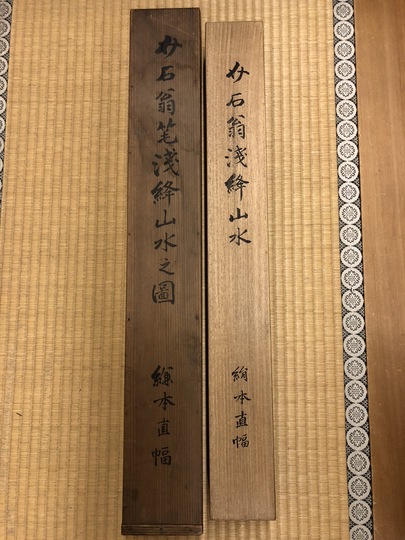 介石翁淺絳山水
絹本直幅
介石翁笔淺絳山水之圖
絹本直幅